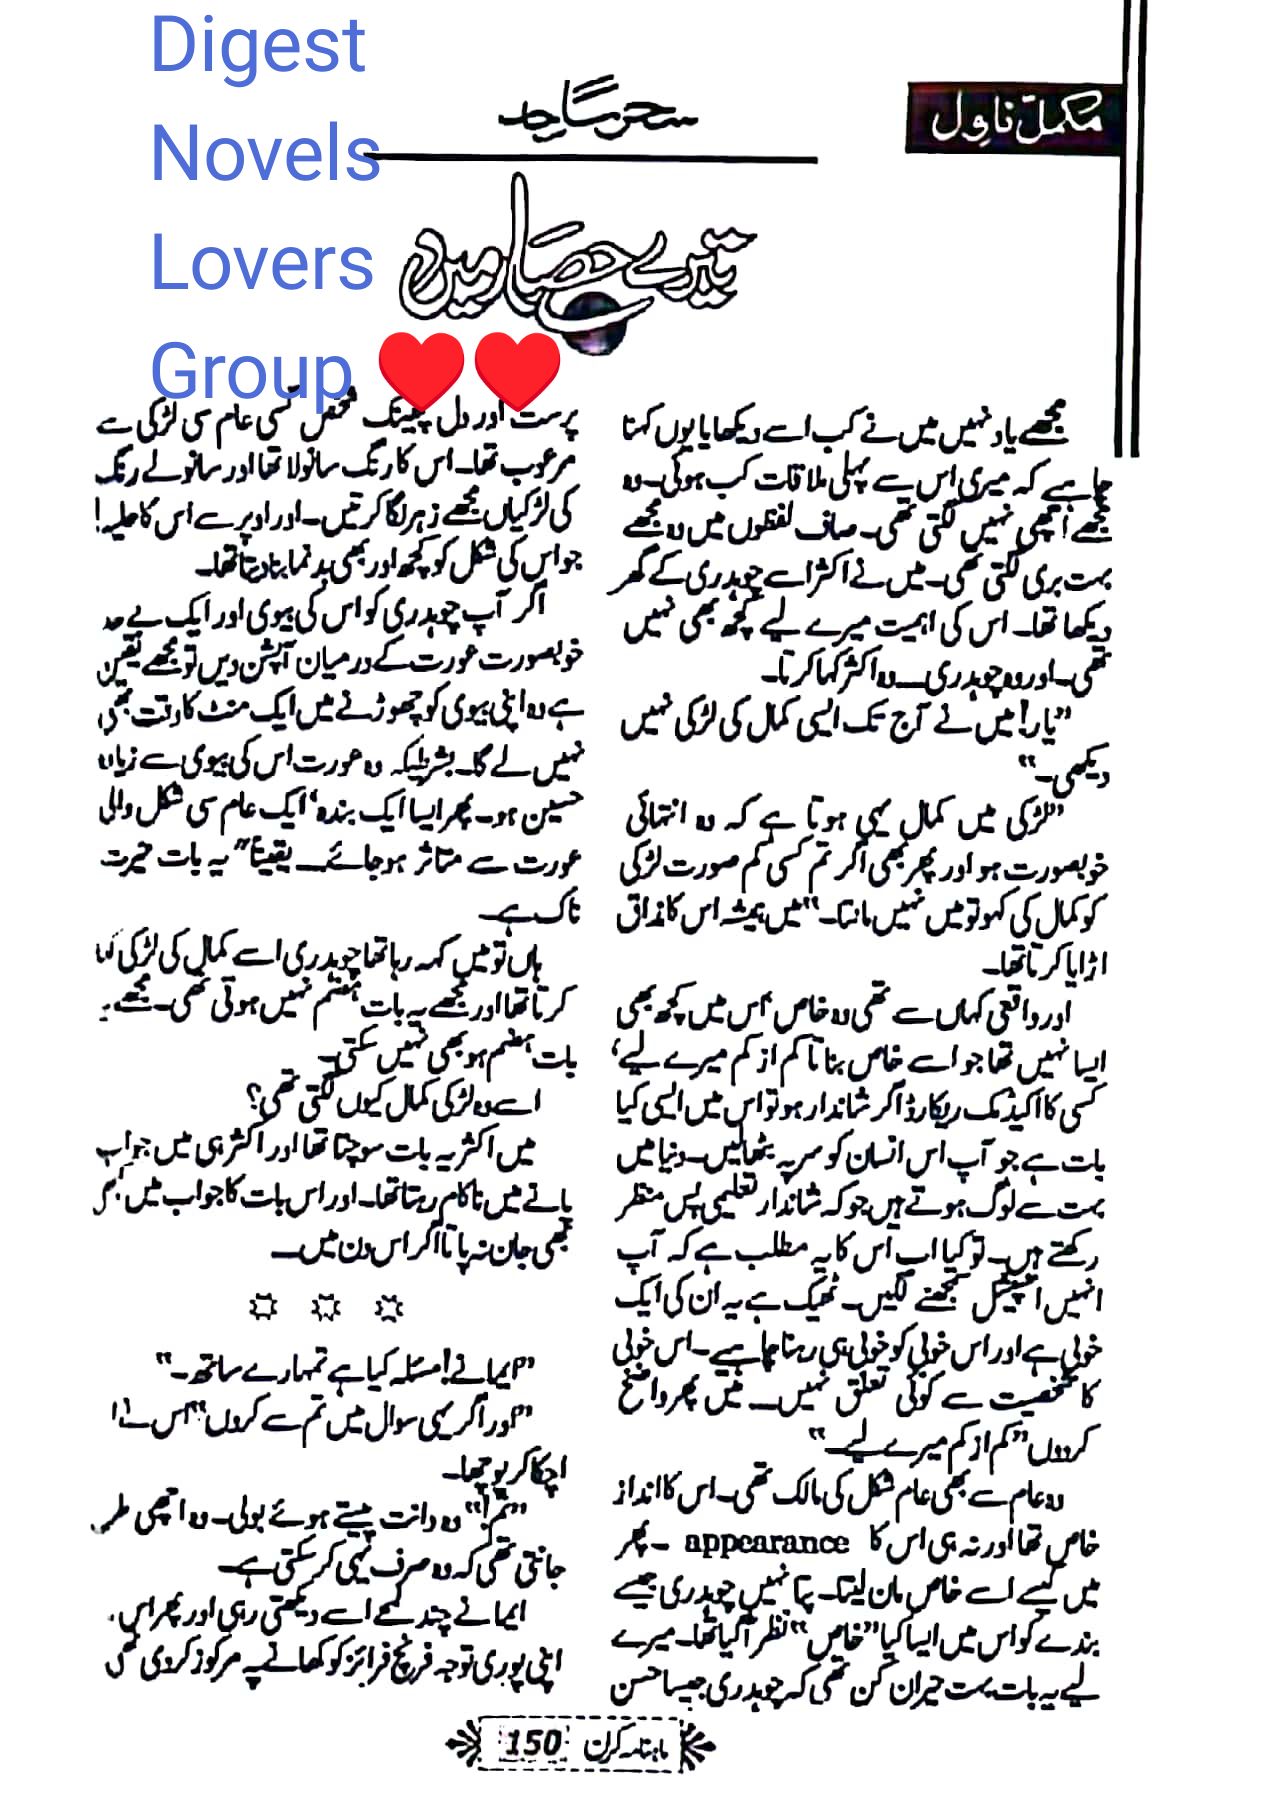 Digest
Novels
Lovers
Group ♥♥
مکمل ناول
سحر ساجد
تیرے حصار میں
مجھے یاد نہیں میں نے کب اسے دیکھا یا یوں کہنا
چاہیے کہ میری اس سے پہلی ملاقات کب ہوئی۔ وہ
مجھے اچھی نہیں لگتی تھی۔ صاف لفظوں میں وہ مجھے
بہت بری لگتی تھی۔ میں نے اکثر اسے چوہدری کے گھر
دیکھا تھا۔ اس کی اہمیت میرے لیے کچھ بھی نہیں
تھی۔ اور وہ چوہدری۔۔۔ وہ اکثر کہا کرتا۔
”یار! میں نے آج تک ایسی کمال کی لڑکی نہیں
دیکھی۔“
”لڑکی میں کمال یہی ہوتا ہے کہ وہ انتہائی
خوبصورت ہو اور پھر بھی اگر تم کسی کم صورت لڑکی
کو کمال کی کہو تو میں نہیں مانتا۔“ میں ہمیشہ اس کا مذاق
اڑایا کرتا تھا۔
اور واقعی کہاں سے تھی وہ خاص‘ اس میں کچھ بھی
ایسا نہیں تھا جو اسے خاص بناتا کم از کم میرے لیے‘
کسی کا اکیڈمک ریکارڈ اگر شاندار ہو تو اس میں ایسی کیا
بات ہے جو آپ اس انسان کو سر پہ بٹھالیں۔ دنیا میں
بہت سے لوگ ہوتے ہیں جو کہ شاندار تعلیمی پس منظر
رکھتے ہیں۔ تو کیا اب اس کا یہ مطلب ہے کہ آپ
انہیں اسپیشل سمجھنے لگیں۔ ٹھیک ہے یہ ان کی ایک
خوبی ہے اور اس خوبی کو خوبی ہی رہنا چاہیے۔ اس خوبی
کا شخصیت سے کوئی تعلق نہیں۔۔۔ میں پھر واضح
کردوں ”کم از کم میرے لیے۔“
وہ عام سے بھی عام شکل کی مالک تھی۔ اس کا انداز
خاص تھا اور نہ ہی اس کا appearance ۔ پھر
میں کیسے اسے خاص مان لیتا۔ پتا نہیں چوہدری جیسے
بندے کو اس میں ایسا کیا ”خاص“ نظر آگیا تھا۔ میرے
لیے یہ بات بہت حیران کن تھی کہ چوہدری جیسا حسن
پرست اور دل پھینک شخص کسی عام سی لڑکی سے
مرعوب تھا۔ اس کا رنگ سانولا تھا اور سانولے رنگ
کی لڑکیاں مجھے زہر لگا کرتیں۔ اور اوپر سے اس کا حلیہ!
جو اس کی شکل کو کچھ اور بھی بدنما بنا دیتا تھا۔
اگر آپ چوہدری کو اس کی بیوی اور ایک بے حد
خوبصورت عورت کے درمیان آپشن دیں تو مجھے یقین
ہے وہ اپنی بیوی کو چھوڑنے میں ایک منٹ کا وقت بھی
نہیں لے گا۔ بشرطیکہ وہ عورت اس کی بیوی سے زیادہ
حسین ہو۔ پھر ایسا ایک بندہ‘ ایک عام سی شکل والی
عورت سے متاثر ہوجائے۔۔۔ یقیناً یہ بات حیرت
ناک ہے۔
ہاں تو میں کہہ رہا تھا چوہدری اسے کمال کی لڑکی کہا
کرتا تھا اور مجھے یہ بات ہضم نہیں ہوتی تھی۔ مجھے یہ
بات ہضم ہو بھی نہیں سکتی۔
اسے وہ لڑکی کمال کیوں لگتی تھی؟
میں اکثر یہ بات سوچتا تھا اور اکثر ہی میں جواب
پانے میں ناکام رہتا تھا۔ اور اس بات کا جواب میں
کبھی جان نہ پاتا اگر اس دن میں۔۔۔
”ایمانے! مسئلہ کیا ہے تمہارے ساتھ۔“
”اور اگر یہی سوال میں تم سے کروں“ اس نے
اچکا کر پوچھا۔
”تم!“ وہ دانت پیستے ہوئے بولی۔ وہ اچھی طر
جانتی تھی کہ وہ صرف یہی کر سکتی ہے۔
ایمانے چند لمحے اسے دیکھتی رہی اور پھر اس
اپنی پوری توجہ فرنچ فرائز کو کھانے پہ مرکوز کردی
ماہنامہ کرن 150